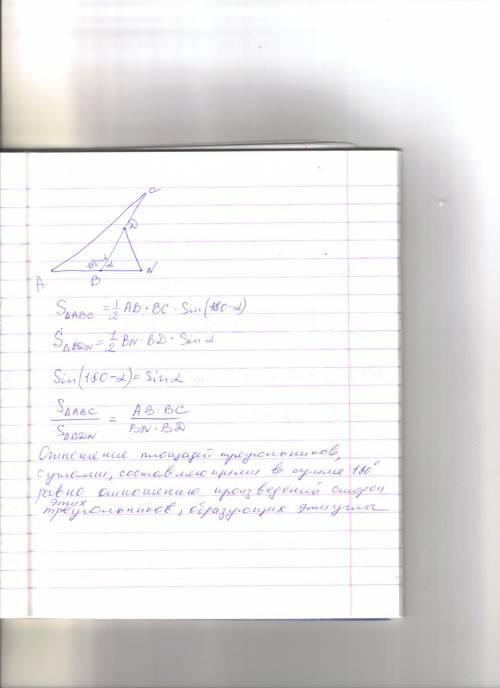 C
D
180-α α
A B N
S△ABC = 1/2 AB · BC · Sin(180-α)
S△BDN = 1/2 BN · BD · Sin α
Sin(180-α) = Sin α
S△ABC / S△BDN = AB · BC / BN · BD
Отношение площадей треугольников,
с углами, составляющими в сумме 180°
равно отношению произведений сторон
этих
треугольников, образующих эти углы